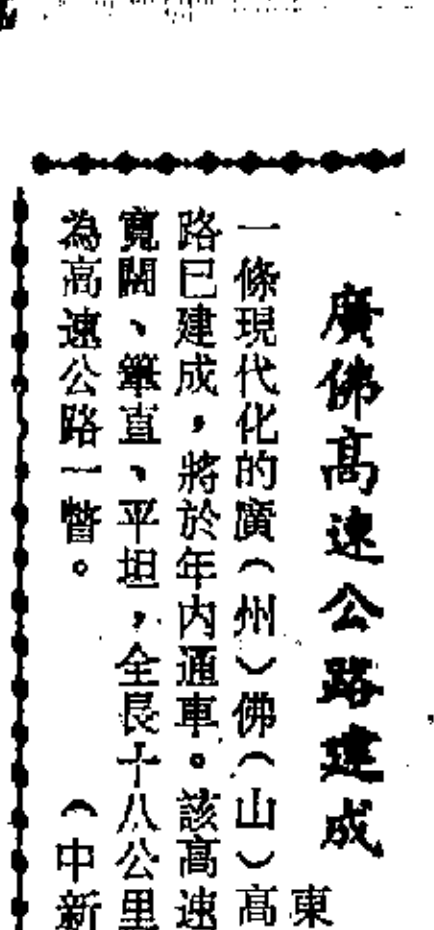 廣佛高速公路建成
東
一條現代化的廣（州）佛（山）高
路已建成，將於年內通車。該高速
寬闊、筆直、平坦，全長十八公里
為高速公路一瞥。（中新